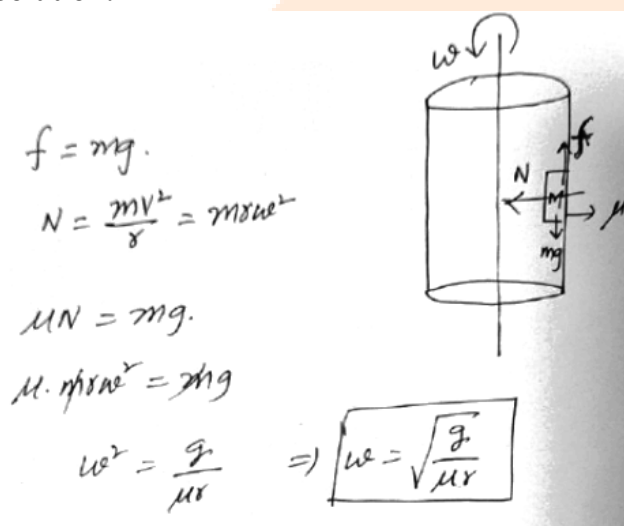 ω
f = mg.
N = mv²/r = mrω²
μN = mg.
μ. mrω² = mg
ω² = g/μr ⇒ ω = √(g/μr)
f
N
M
mg